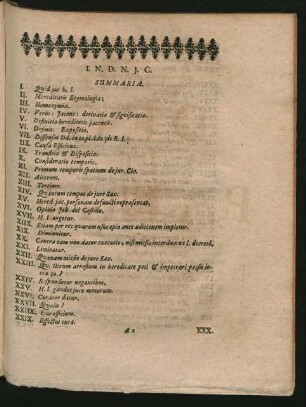 I. N. D. N. J. C.
SUMMARIA.
I. Quid jus h. l.
II. Hereditatis Etymologia;
III. Homonymia.
IV. Verbi: Jacens: derivatio & significatio.
V. Definitio hereditatis jacentis.
VI. Definit. Expositio.
VII. Dissensus Dd.
IIX. Causa Efficiens.
IX. Transitio & Dispositio.
X. Consideratio temporis.
XI. Primum temporis spatium de jur. Civ.
XII. Alterum.
XIII. Tertium.
XIV. Quartum tempus de jure Sax.
XV. Hered. jac. personam defuncti repraesentat.
XVI. Opinio Joh. del Castillo.
XVII. H. I. augetur.
XIIX. Etiam per res quarum usucapio ante aditionem impletur.
XIX. Diminuitur.
XX. Contra eam non datur executio, nisi missio interdum ex I. decreto,
XXI. Limitatur.
XXII. Quaenam missio de jure Sax.
XXIII. Qu. Utrum arrestum in hereditate peti & impetrari possit
XXIV. Respondetur negantibus.
XXV. H. I. gaudet jure minorum.
XXVI. Curator datur.
XXVII. Qualis?
XXIIX. Ejus officium.
XXIX. Effectus curae.
A 2 XXX.